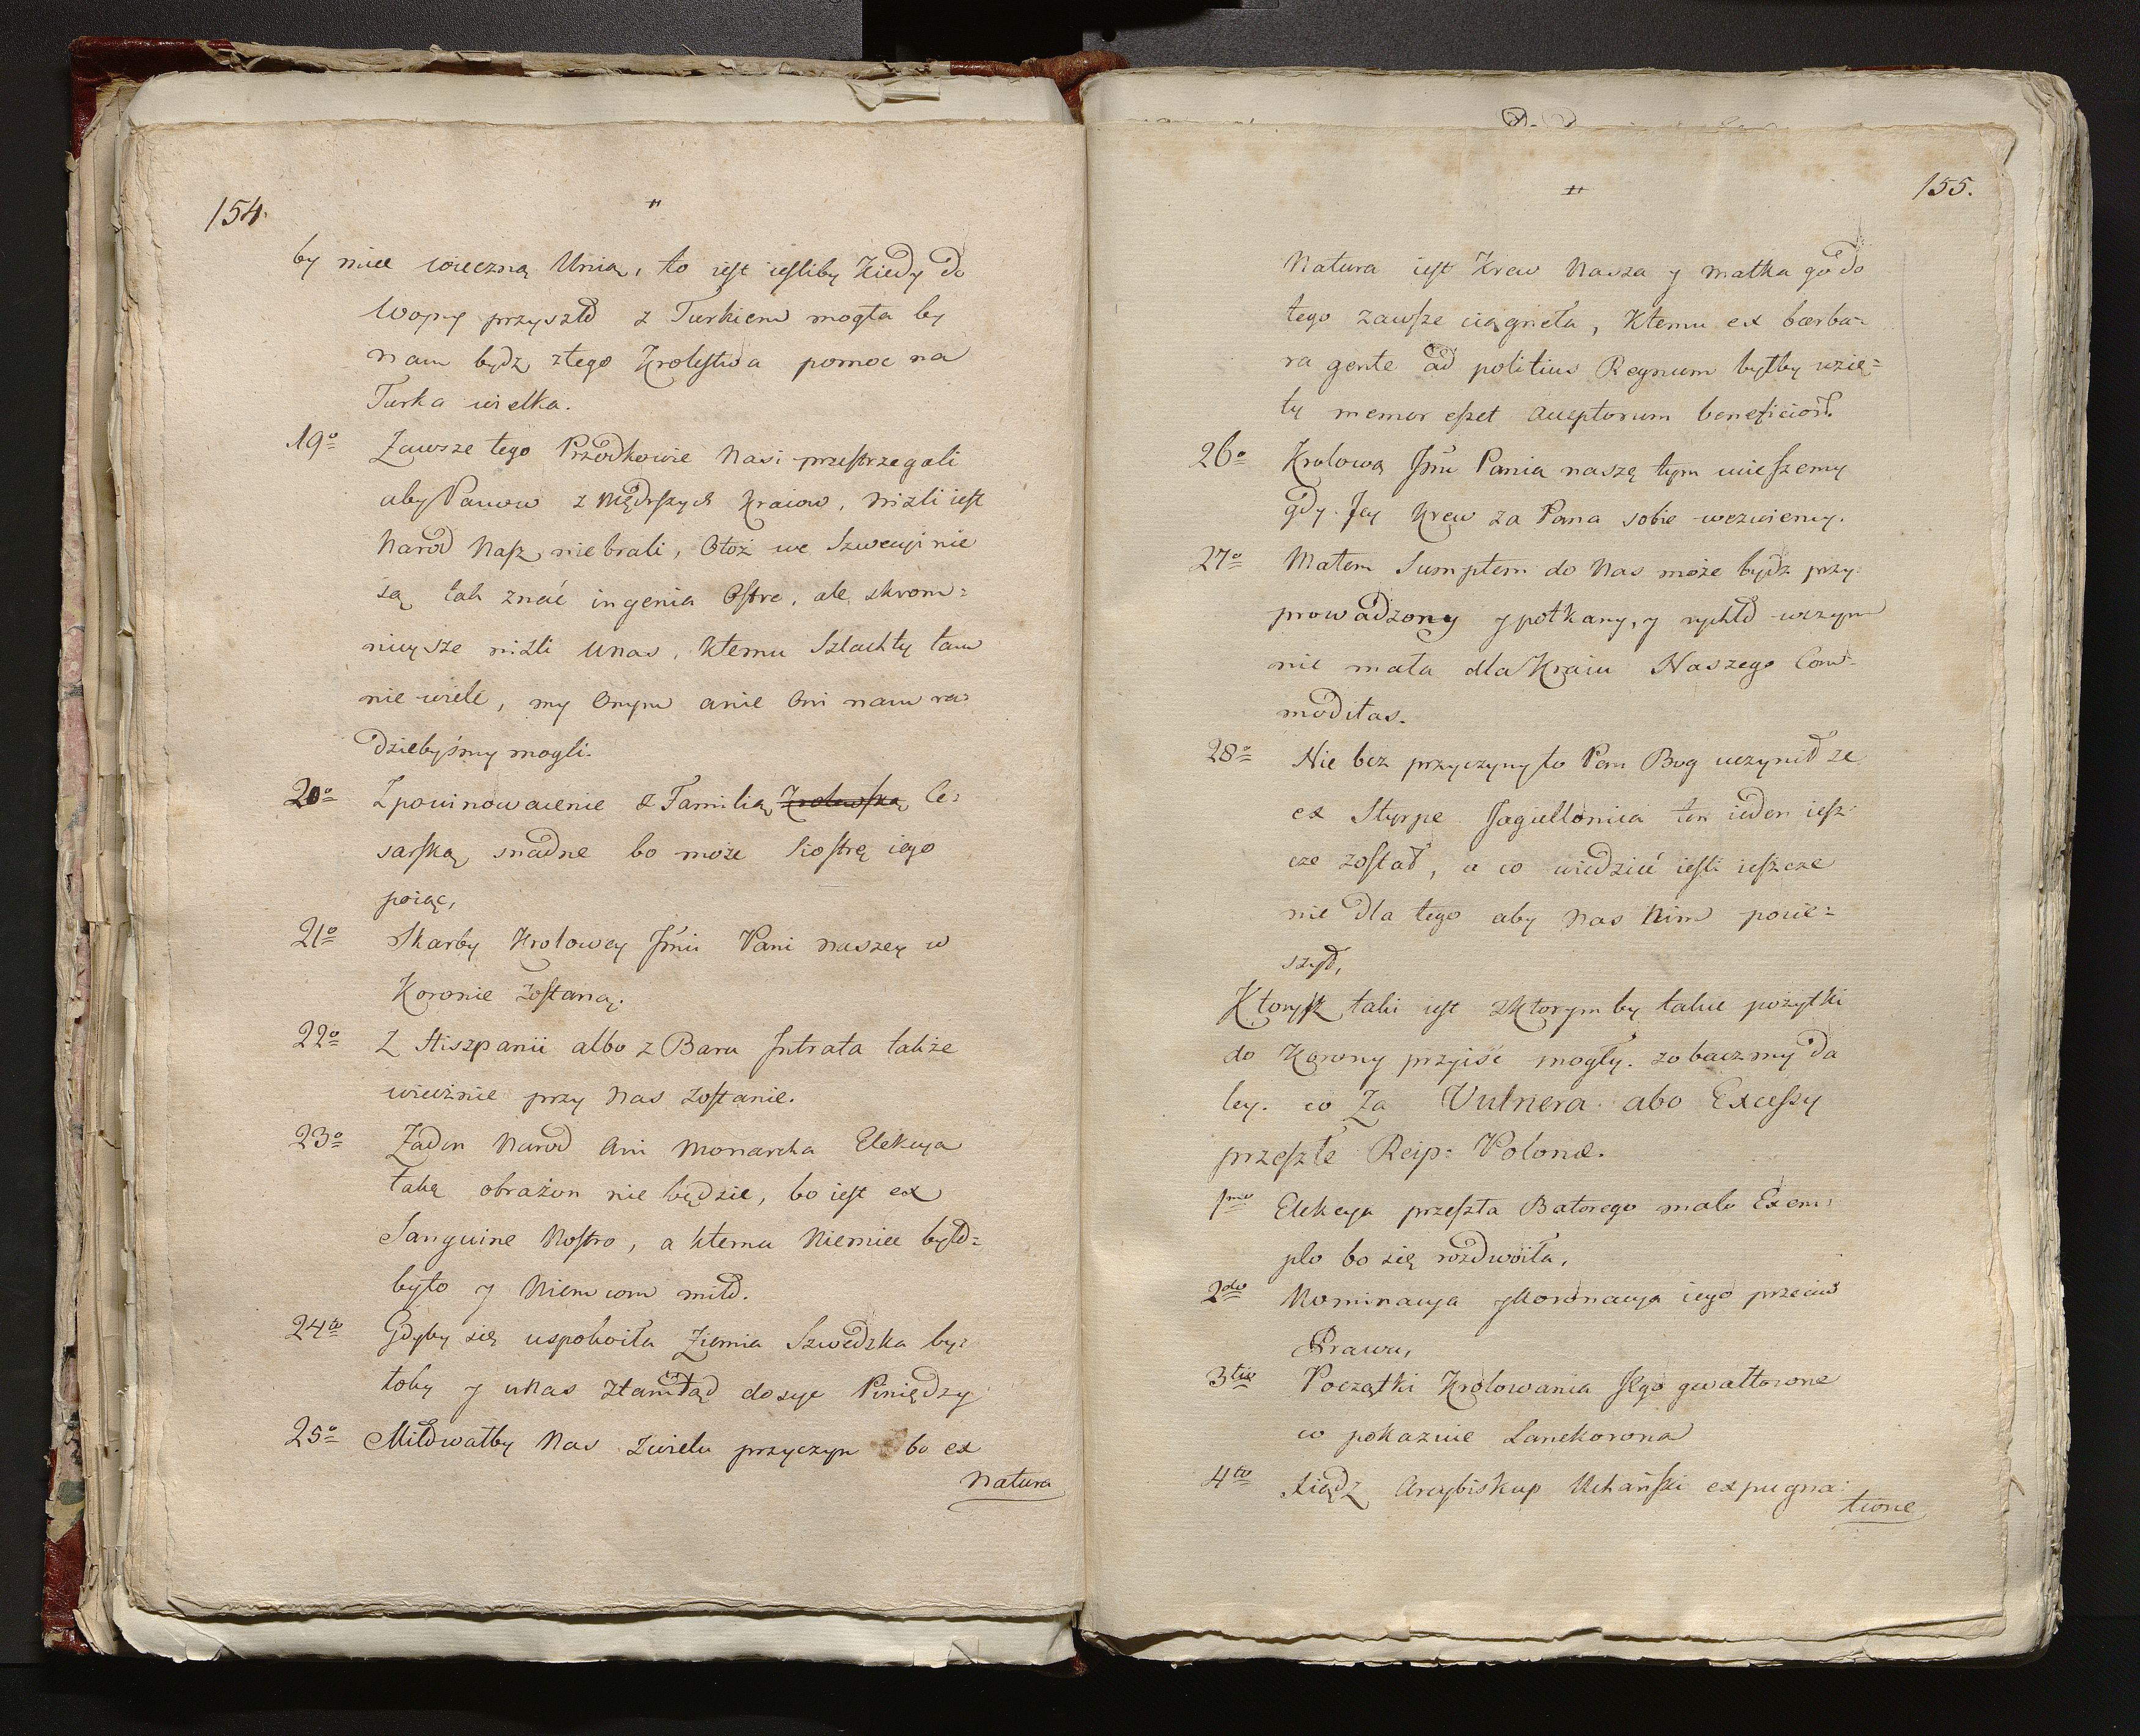 154.
"
by miec wieczną Unią, to iest iesliby kiedy do
Woyny przyszło z Turkiem mogła by
nam bydz ztego Krolestwa pomoc na
Turka wielka.
19o Zawsze tego Przodkowie Nasi przestrzegali
aby Panow z Mędrszych kraiow, nizli iest
Narod Nasz nie brali, Otoż we Szwecyi nie
są tak znać ingenia Ostre, ale skrom=
nieysze nizli u nas, ktemu Szlachty tam
nie wiele, my Onym anie Oni nam ra=
dziebyśmy mogli.
20o Zpowinowacenie z Familią Krolewską Ce=
sarską snadne bo może Siostrę iego
poiąc,
21o Skarby Krolowey Jmci Pani naszey w
Koronie Zostaną.
22o Z Hiszpanii albo z Baru Intrata także
wiecznie przy Nas Zostanie.
23o Zaden Narod Ani Monarcha Elekcya
taką obrażon nie będzie, bo iest ex
Sanguine Nostro, a ktemu Niemiec było=
byto y Niemcom miło.
24to Gdyby się uspokoiła Ziemia Szwedzka by=
łoby y u Nas ztamtąd dosyc Piniędzy
25o Miłowałby Nas Zwielu przyczyn bo ex
Natura
"
155.
Natura iest Krew Nasza y matka go do
tego zawsze ciągneła, Ktemu ex barba=
ra gente ad politius Regnum byłby wzię=
ty memor esset acceptorum beneficior.
26o Krolową Jmc Pania naszę tym uieszemy
gdy Jey Krew za Pana sobie wezwiemy.
27o Małem Sumptem do Nas może bydz przy=
prowadzony y potkany, y rychło wczym
nie mała dla Kraiu Naszego Com=
moditas.
28o Nie bez przyczyny to Pan Bog uczynił ze
ex Styrpe Jagiellonica ten ieden iesz=
cze został, a co wiedzieć iesli ieszcze
nie dla tego aby Nas Nim pocie=
szył,
Ktorysz taki iest zktorym by takie pożytki
do Korony przyiśc mogły. zobaczmy da
ley. co Za Vulnera abo Excessy
przeszłe Reip: Polonæ.
1mo Elekcya przeszła Batorego malo Exem=
plo bo się rozdwoiła,
2do Nominacya y Koronacya iego przeciw
Prawu,
3tio Początki Krolowania Jego gwałtowne
co pokazuie Lanckorona
4to Xiądz Arcybiskup Uchański expugna=
tione